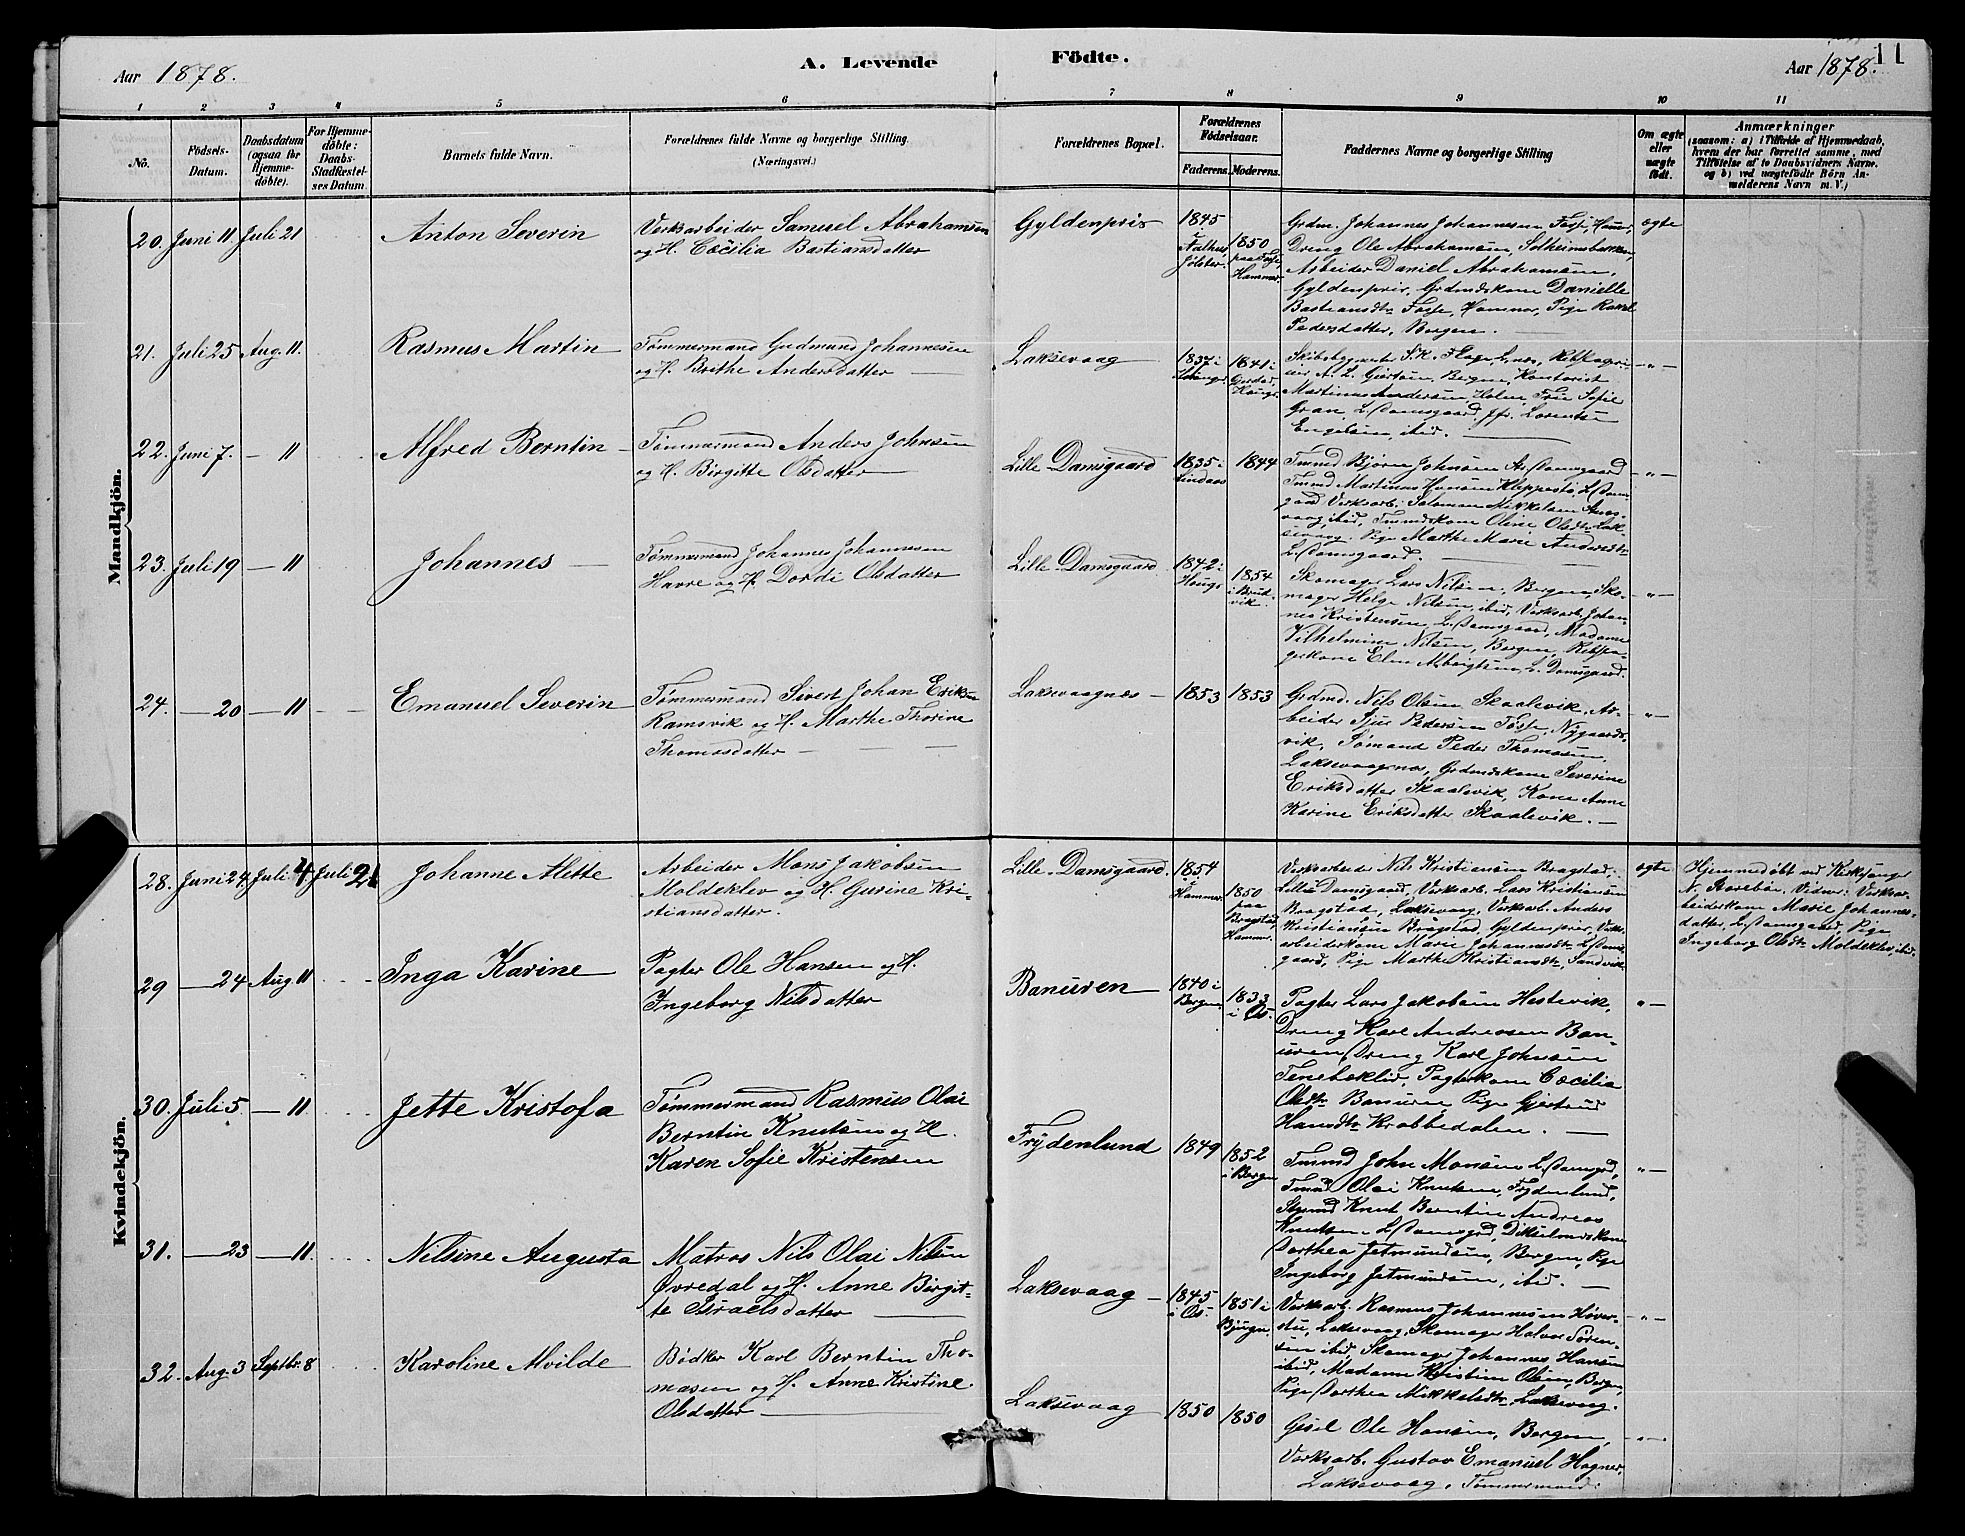 Aar 1878.
A. Levende
Födte.
Aar 1878.
11
1 2 3 4 5 6 7 8 9 10 11
No.
Födsels-
Datum.
Daabsdatum
(ogsaa for
Hjemme-
döbte).
For Hjemme-
döbte:
Daabs-
Stadfæstel-
ses Datum.
Barnets fulde Navn.
Forældrenes fulde Navne og borgerlige Stilling
(Næringsvei.)
Forældrenes Bopæl.
Forældrenes
Födselsaar.
Faderens.
Moderens.
Faddernes Navne og borgerlige Stilling
Om ægte
eller
uægte
födt.
Anmærkninger
(saasom: a) i Tilfælde af Hjemmedaab,
hvem der har forrettet samme, med
Tilföielse af to Daabsvidners Navne,
og b) ved uægtefödte Börn An-
melderens Navn m. V.)
Mandkjön.
20. Juni 11 Juli 21
Anton Severin
Verksarbeider Samuel Abrahamsen
og H. Cecilia Bastiansdatter
Gyldenpris
1845
i Aalhus,
Jölster.
1850
paa Fosse,
Hammer.
Grdm. Johannes Johannesen Fosse, Hamer,
Dreng Ole Abrahamsen, Solheimsbakken,
Arbeider Daniel Abrahamsen,
Gyldenpris, Grdmdskone Danielle
Bastiansdtr Fosse, Hammer, Pige Rakel
Pedersdatter, Bergen.
ægte
21. Juli 25 Aug. 11.
Rasmus Martin
Tömmermand Gudmund Johannesen
og H. Brithe Andersdatter
Laksevaag
1837 i
1841 i
Skibsbygmst. S. K. Flage, L.næs,
Bergen, Kontorist
Martinus Andersen, Holm, Frue Sofie
Gran, L. Damsgaard, Jfr. Lorentse
Engelsen, ibid.
-"-
22. Juni 7. - 11
Alfred Berntin
Tömmermand Anders Johnsen
og H. Birgitte Olsdatter
Lille Damsgaard
1835 i
Lindaas
1844
Tmmd Bjørn Johnsen St. Damsgaard
Tmmd Martinus Hansen Kleppestø, L. Dams-
gaard Verksarb. Salomon Mikkelsen
ibid, Tmmdskone Oline Olsdtr Lak-
sevaag. Pige Marthe Marie Andersdtr
L. Damsgaard.
-"-
23. Juli 19 - 11
Johannes
Tømmermand Johannes Johannesen
Havre og H. Dordi Olsdatter
Lille Damsgaard
1842 i
Hougs
1854
i Bruk-
vik.
Skomager Lars Nilsen, Bergen, Sko-
mager Helge Nilsen, ibid, Verksarb. Johan-
nes Kristensen, L. Damsgaard, Madame
Vilhelmine Nilsen, Bergen,
Elen Albregtsen, L. Damsgaard.
-"-
24. - 20 - 11
Emanuel Severin
Tømmermand Sivert Johan Eriksen
Ramsvik og H. Marthe Thorine
Thomasdatter
Laksevaagnæs
1853
1853
Grdmd. Nils Olsen Skaalevik, Ar-
beider Sjur Pedersen Fosse, Nygaards-
vik, Sømand Peder Thomasen
Laksevaagnæs, Grdmdskone Severine
Eriksdatter Skaalevik, Kone Anne
Karine Eriksdatter Skaalevik.
-"-
Kvindekjön.
28. Juni 24. Juli 4 Juli 21
Johanne Alette
Arbeider Mons Jakobsen
Moldeklev og H. Gurine Kri-
stiansdatter.
Lille Damsgaard.
1854
i
Hammer.
1850
paa
Bragstad,
Hammer.
Verksarbeider Nils Kristiansen Bragstad,
Lille Damsgaard, Verksarb. Lars Kristiansen
Bragstad, Laksevaag, Verksarb. Anders
Kristiansen Bragstad, Gyldenpris, Verks-
arbeiderkone Marie Johannesdtr L. Dams-
gaard, Pige Marthe Kristiansdtr, Sandvik.
ægte
Hjemmedøbt ved Kirkesanger
N. Vidner: Verksar-
beiderkone Marie Johannes-
datter, L. Damsgaard, Pige
Ingeborg Olsdtr Moldeklev, ibid.
29 - 24 Aug. 11
Inga Karine
Pagter Ole Hansen og H.
Ingeborg Nilsdatter
Banuren
1840 i
Bergen
1833
i Os.
Pagter Lars Jakobsen Hestevik,
Dreng Karl Andreasen Ban-
uren, Dreng Karl Johnsen
Tenebeklid, Pagterkone Cecilia
Olsdtr Banuren, Pige Gjertrud
Hansdtr Krabbedalen.
"-
30. Juli 5. - 11
Jette Kristofa
Tømmermand Rasmus Olai
Berntin Knutsen og H.
Karen Sofie Kristensen
Frydenlund
1849
1852
i Bergen
Tmmd John Monsen L. Damsgrd,
Tmmd Olai Knutsen, Frydenlund,
Styrmd Knut Berntin Andreas
Knutsen, L. Damsgrd,
Dorthea Jetmundsen, Bergen, Pige
Ingeborg Jetmundsen, ibid.
"-
31. - 23 - 11.
Nilsine Augusta
Matros Nils Olai Nilsen
Øvredal og H. Anne Birgit-
te Israelsdatter
Laksevaag
1845
i Os.
1851 i
Bjugn.
Verksarb. Rasmus Johannesen
Laksevaag, Skomager Halvor Søren-
sen ibid, Skomager Johannes Hansen
ibid, Madame Kristine Olsen, Bergen,
Pige Dorthea Mikkelsdtr, Laksevaag.
-"-
32. Aug. 3 Septbr. 8
Karoline Alvilde
Bødker Karl Berntin Tho-
masen og H. Anne Kristine
Olsdatter
Laksevaag
1850
1850
Gesel Ole Hansen, Bergen,
Verksarb. Gustav Emanuel Hagner,
Laksevaag, Tømmermand
-"-